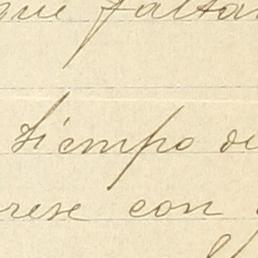 que falta
tiempo de
rese con